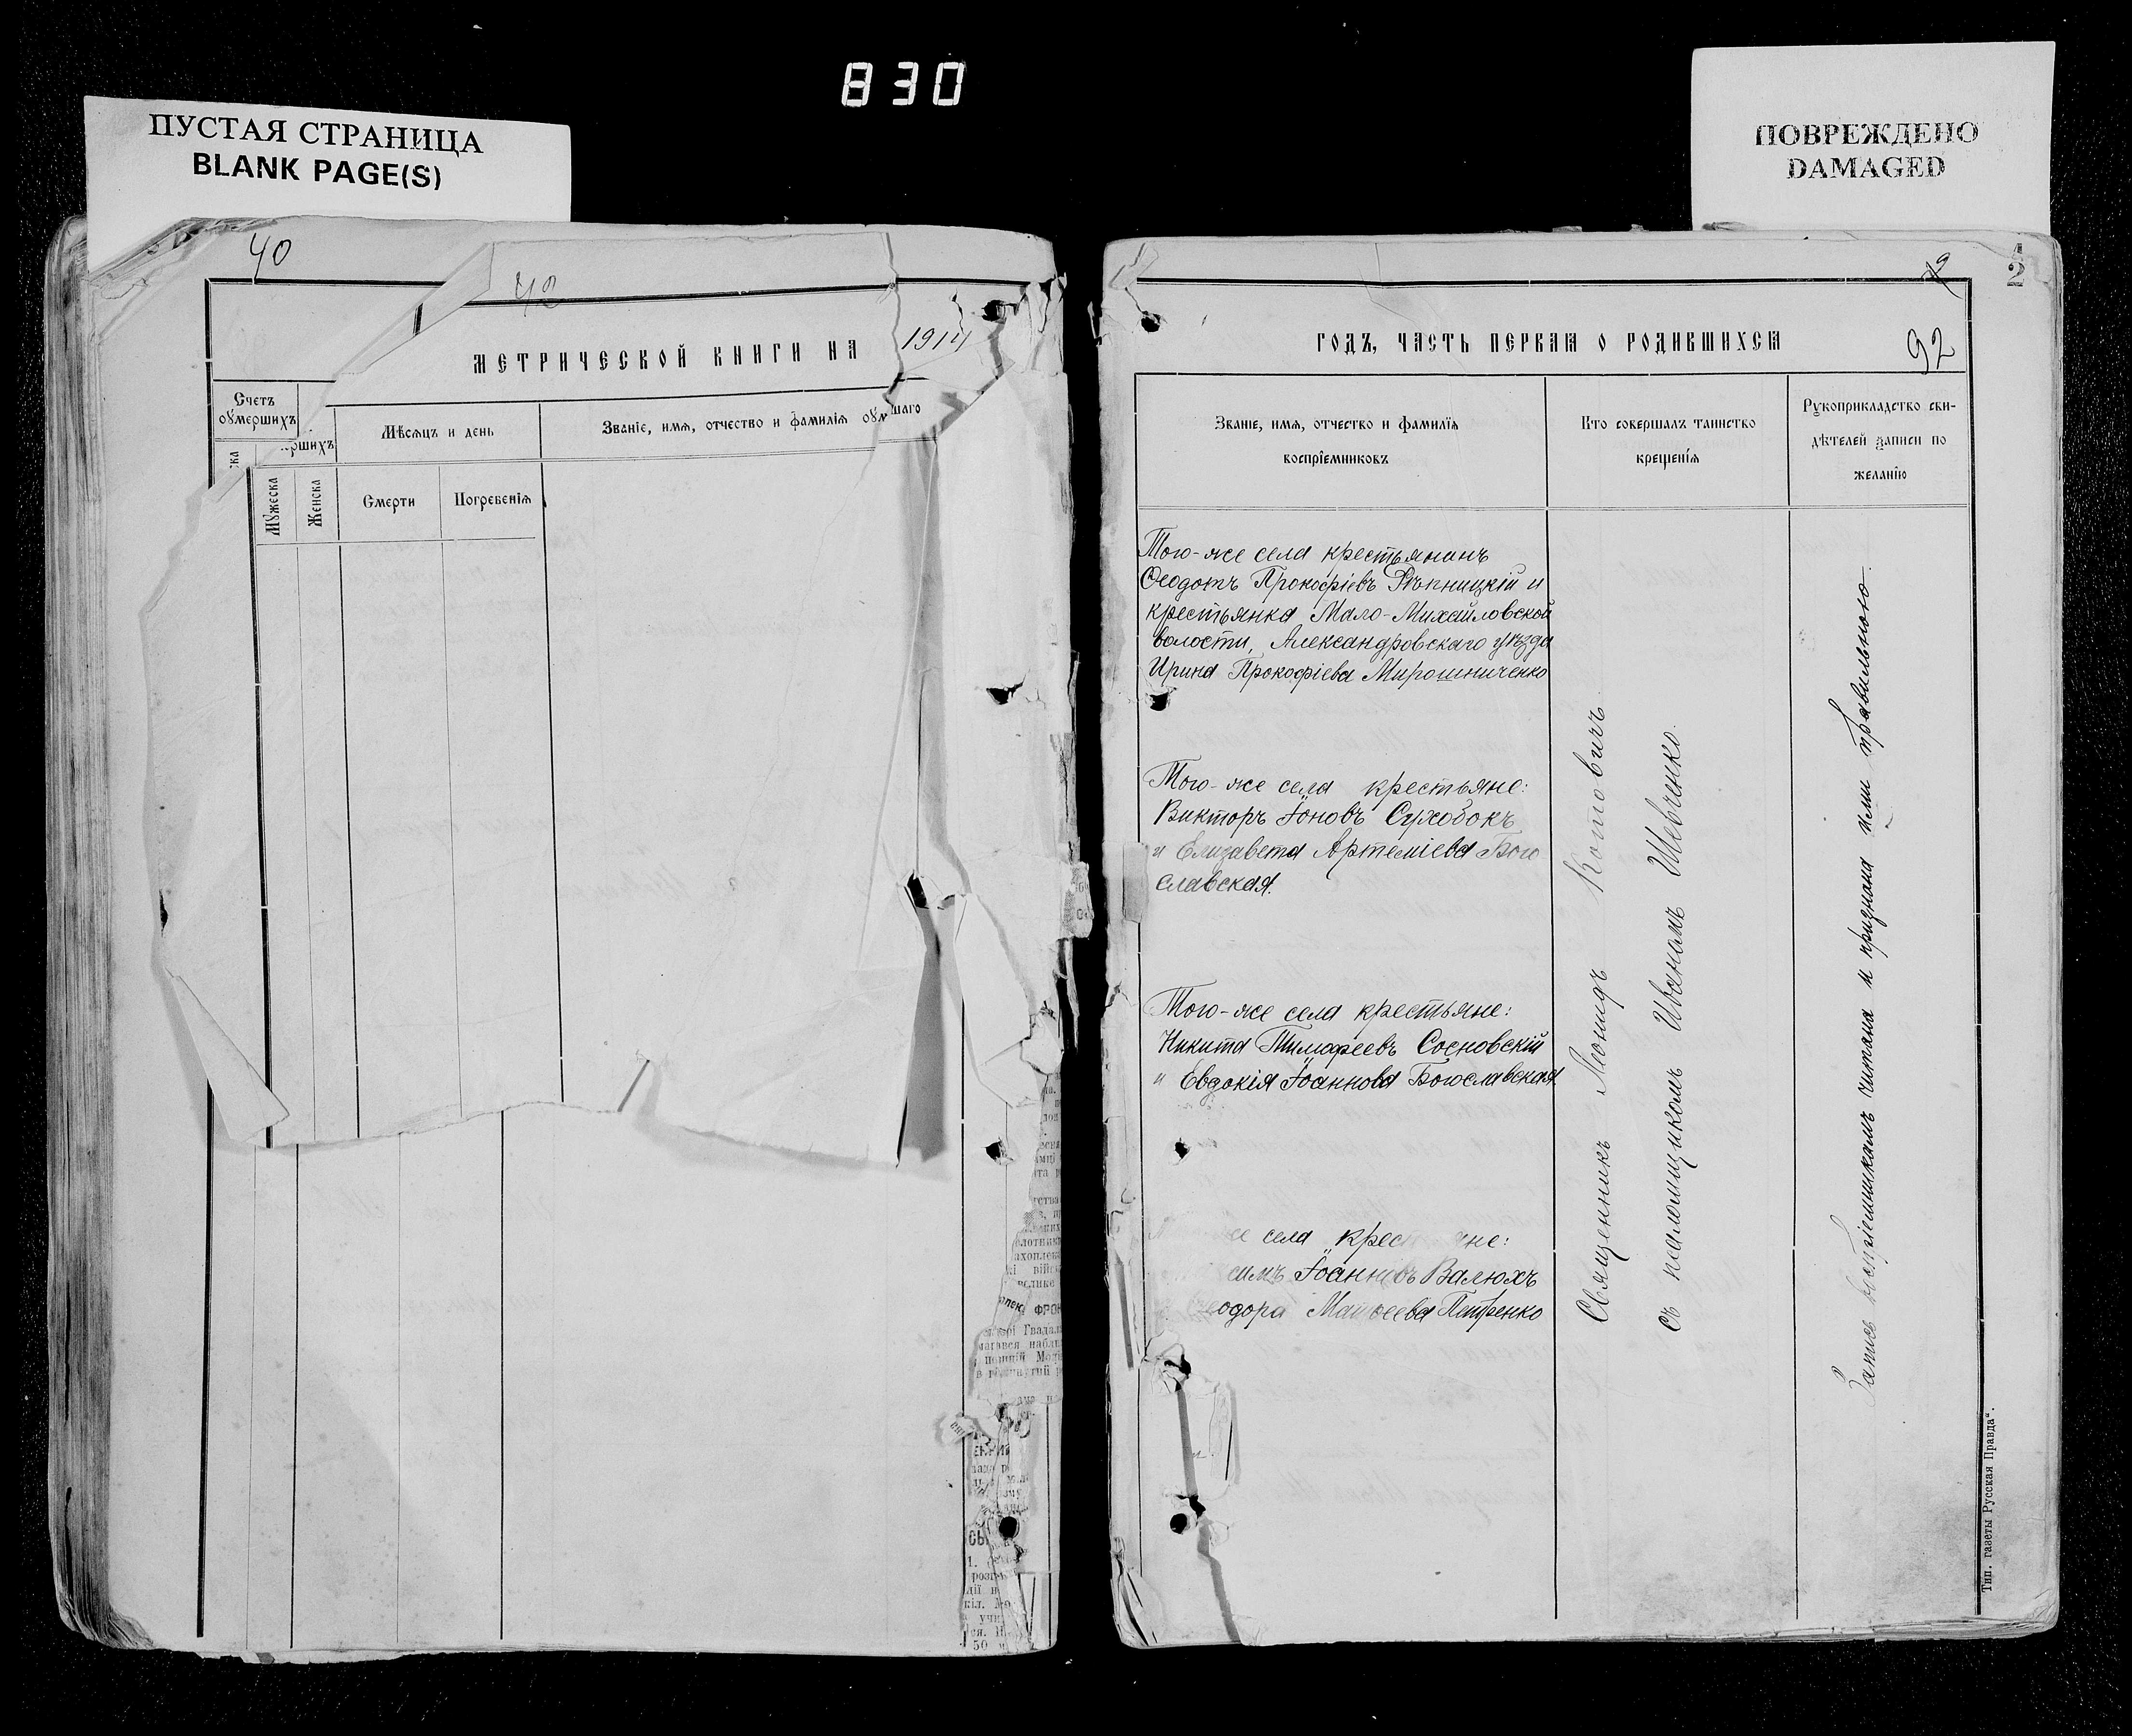 830
ПУСТАЯ СТРАНИЦА
BLANK PAGE(S)
ПОВРЕЖДЕНО
DAMAGED
40
42
МЕТРИЧЕСКОЙ КНИГИ НА 1914
Счетъ
оумершихъ
ршихъ
Мѣсяцъ и день
Званіе, имя, отчество и фамилія оум шаго
Мужеска
Женска
Смерти
Погребенія
2
ГОДЪ, ЧАСТЬ ПЕРВАЯ О РОДИВШИХСЯ
92
Званіе, имя, отчество и фамилія
воспріемниковъ
Кто совершалъ таинство
крещенія
Рукоприкладство сви-
дѣтелей записи по
желанію
Того-же села крестьянинъ
Ѳеодотъ Прокофіевъ Рѣпницкій и
крестьянка Мало-Михайловской
волости, Александровскаго уѣзда
Ирина Прокофіева Мирошниченко
Того-же села крестьяне:
Викторъ Іоновъ Сухобокъ
и Елизавета Артеміева Бого
славская.
Того-же села крестьяне:
Никита Тимофеевъ Сосновскій
и Евдокія Іоаннова Богославская
се села крес яне:
симъ Іоанновъ Валюхъ
одора Матѳеева Петренко
Священникъ Леонидъ Котовичъ
съ псаломщикомъ Шевченко.
Запись воспріемникамъ читана и признана ими правильною.
Тип. газеты Русская Правда“.